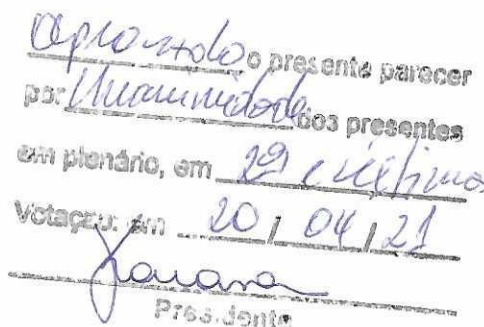 aprovado o presente parecer
por Unanimidade dos presentes
em plenário, em 2ª e última
Votação: em 20 / 04 / 21
Presidente